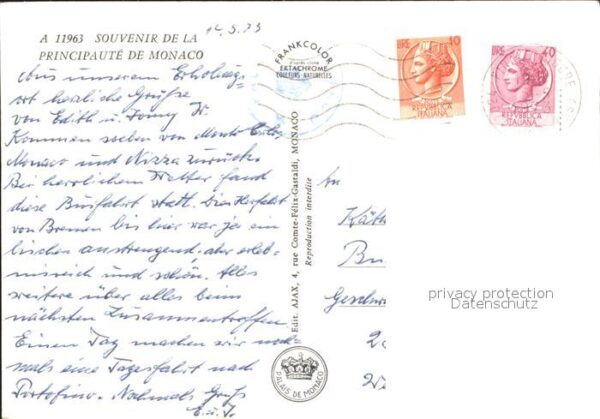 14.5.73
A 11963 SOUVENIR DE LA
PRINCIPAUTÉ DE MONACO
Aus unserem Erholungs-
ort herzliche Grüße
von Edith u. Jonny K.
Kommen soeben von Monte Carlo,
Monaco und Nizza zurück.
Bei herrlichem Wetter fand
diese Busfahrt statt. Die Herfahrt
von Bremen bis hier war ja ein
bischen anstrengend, aber erleb-
nisreich und schön. Alles
weitere über alles beim
nächsten Zusammentreffen.
Einen Tag machen wir noch-
mals eine Tagesfahrt nach
Portofino. Nochmals Gruß
E. u. J.
FRANKCOLOR
d'après cliché
EKTACHROME
COULEURS NATURELLES
LIRE 10
REPVBBLICA
ITALIANA
LIRE 40
REPVBBLICA
ITALIANA
Edit. AJAX, 4, rue Comte-Félix-Gastaldi, MONACO
Reproduction interdite
PALAIS DE MONACO
An
Käth
Bu
Geschw
2
privacy protection
Datenschutz